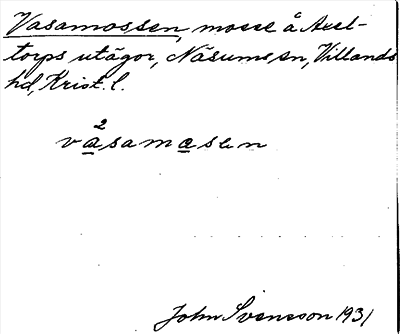 Vasamossen, mosse å Axel-
torps utägor, Näsums sn, Villands
hd, Krist. l.
2
vasamasen
John Svensson 1931